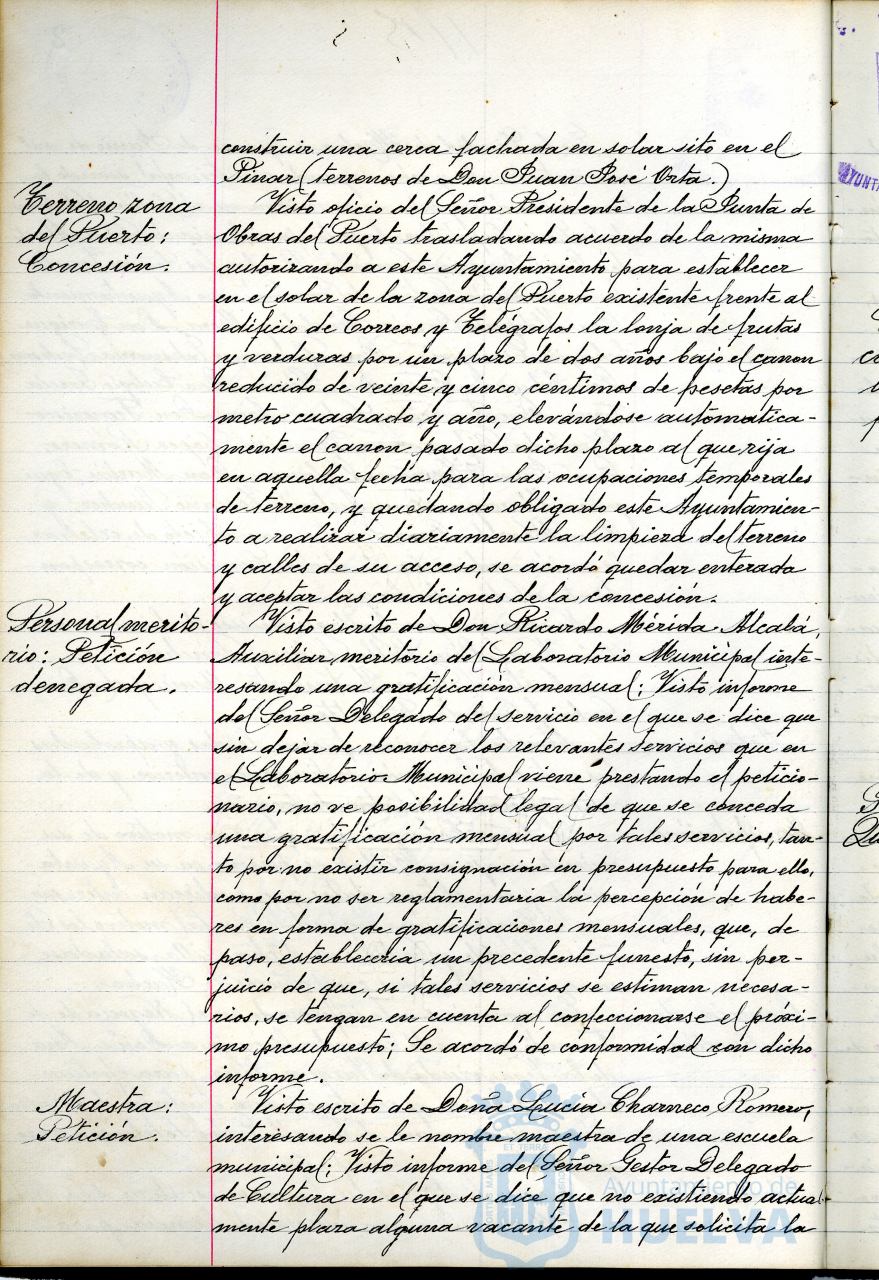 construir una cerca fachada en solar sito en el
Pinar (terrenos de Don Juan José Orta.)
Terreno zona
del Puerto:
Concesión.
Visto oficio del Señor Presidente de la Junta de
Obras del Puerto trasladando acuerdo de la misma
autorizando a este Ayuntamiento para establecer
en el solar de la zona del Puerto existente frente al
edificio de Correos y Telégrafos la lonja de frutas
y verduras por un plazo de dos años bajo el canon
reducido de veinte y cinco céntimos de pesetas por
metro cuadrado y año, elevándose automática-
mente el canon pasado dicho plazo al que rija
en aquella fecha para las ocupaciones temporales
de terreno, y quedando obligado este Ayuntamien-
to a realizar diariamente la limpieza del terreno
y calles de su acceso, se acordó quedar enterada
y aceptar las condiciones de la concesión.
Personal merito-
rio: Petición
denegada.
Visto escrito de Don Ricardo Mérida Alcabá,
Auxiliar meritorio del Laboratorio Municipal inte-
resando una gratificación mensual; Visto informe
del Señor Delegado del servicio en el que se dice que
sin dejar de reconocer los relevantes servicios que en
el Laboratorio Municipal viene prestando el peticio-
nario, no ve posibilidad legal de que se conceda
una gratificación mensual por tales servicios, tan-
to por no existir consignación en presupuesto para ello,
como por no ser reglamentaria la percepción de habe-
res en forma de gratificaciones mensuales, que, de
paso, establecería un precedente funesto, sin per-
juicio de que, si tales servicios se estiman necesa-
rios, se tengan en cuenta al confeccionarse el próxi-
mo presupuesto; Se acordó de conformidad con dicho
informe.
Maestra:
Petición.
Visto escrito de Doña Lucía Charneco Romero,
interesando se le nombre maestra de una escuela
municipal; Visto informe del Señor Gestor Delegado
de Cultura en el que se dice que no existiendo actual-
mente plaza alguna vacante de la que solicita la
Ayuntamiento de
HUELVA